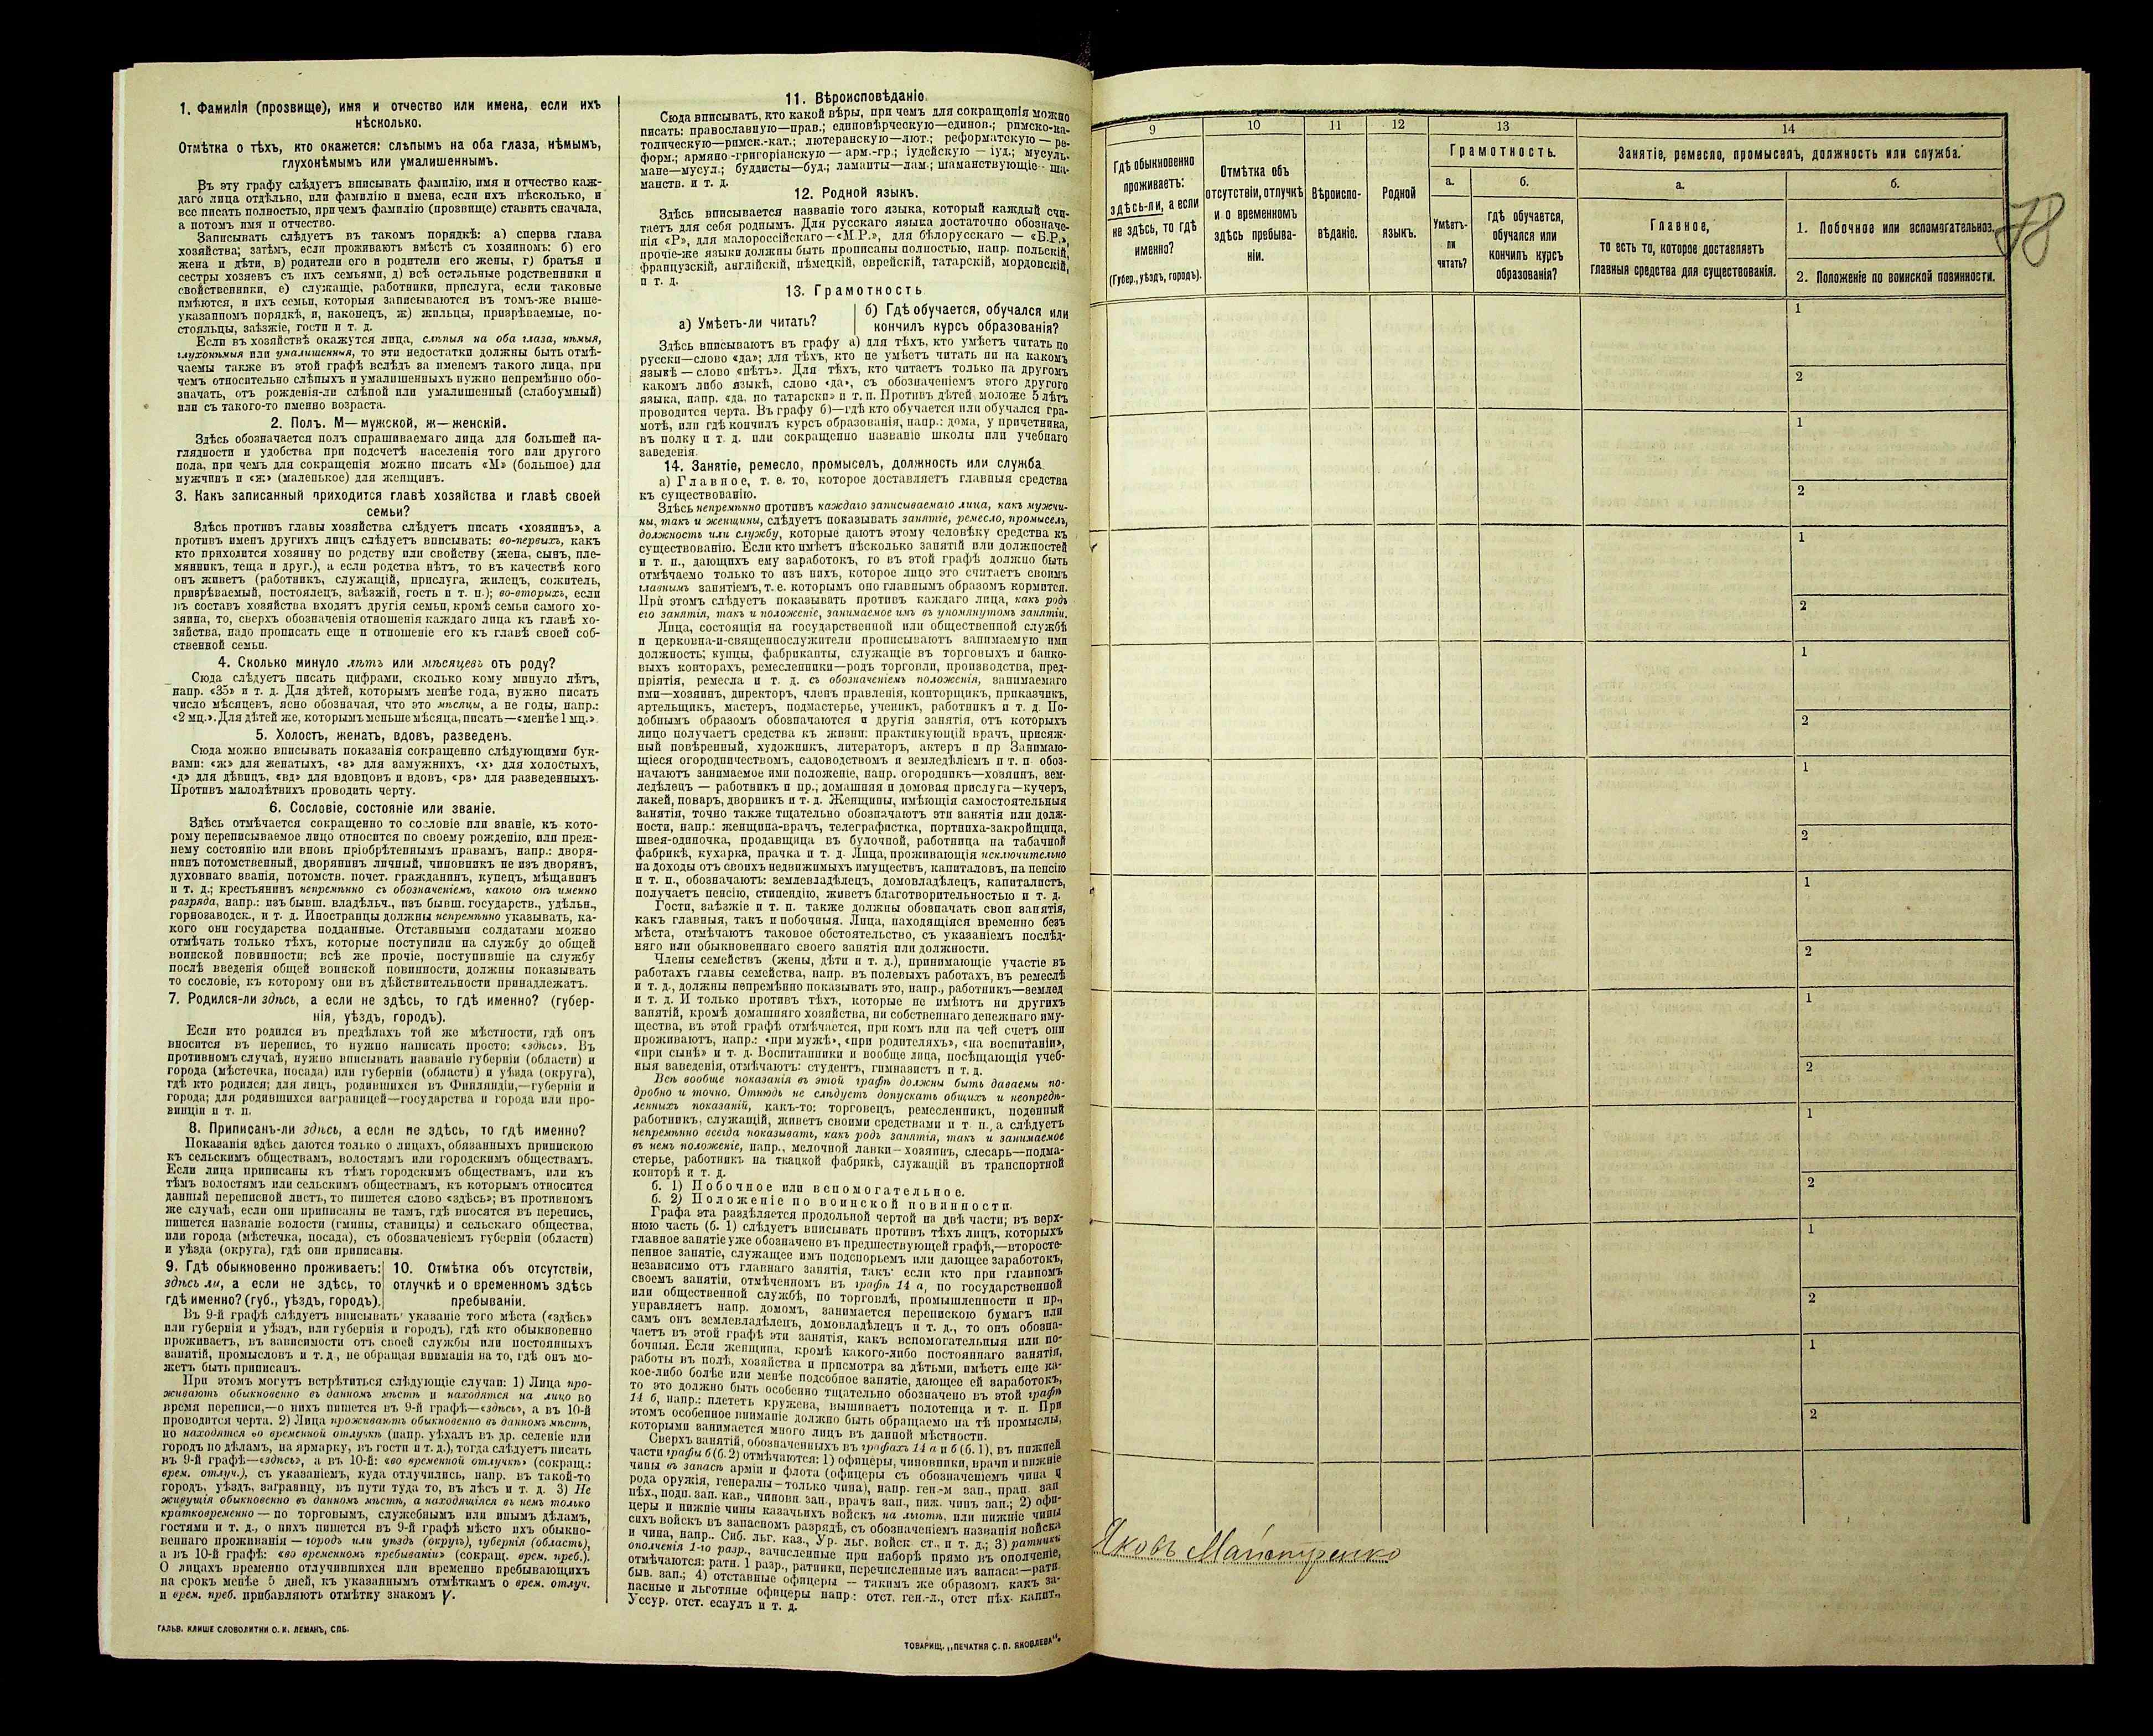 1. Фамилія (прозвище), имя и отчество или имена, если ихъ
нѣсколько.
Отмѣтка о тѣхъ, кто окажется: слѣпымъ на оба глаза, нѣмымъ,
глухонѣмымъ или умалишеннымъ.
Въ эту графу слѣдуетъ вписывать фамилію, имя и отчество каж-
даго лица отдѣльно, или фамилію и имена, если ихъ нѣсколько, и
все писать полностью, при чемъ фамилію (прозвище) ставить сначала,
а потомъ имя и отчество.
Записывать слѣдуетъ въ такомъ порядкѣ: а) сперва глава
хозяйства; затѣмъ, если проживаютъ вмѣстѣ съ хозяиномъ: б) его
жена и дѣти, в) родители его и родители его жены, г) братья и
сестры хозяевъ съ ихъ семьями, д) всѣ остальные родственники и
свойственники, е) служащіе, работники, прислуга, если таковые
имѣются, и ихъ семьи, которыя записываются въ томъ-же выше-
указанномъ порядкѣ, и, наконецъ, ж) жильцы, призрѣваемые, по-
стояльцы, заѣзжіе, гости и т. д.
Если въ хозяйствѣ окажутся лица, слѣпыя на оба глаза, нѣмыя,
глухонѣмыя или умалишенныя, то эти недостатки должны быть отмѣ-
чаемы также въ этой графѣ вслѣдъ за именемъ такого лица, при
чемъ относительно слѣпыхъ и умалишенныхъ нужно непремѣнно обо-
значать, отъ рожденія-ли слѣпой или умалишенный (слабоумный)
или съ такого-то именно возраста.
2. Полъ. М—мужской, ж—женскій.
Здѣсь обозначается полъ спрашиваемаго лица для большей на-
глядности и удобства при подсчетѣ населенія того или другого
пола, при чемъ для сокращенія можно писать «М» (большое) для
мужчинъ и «ж» (маленькое) для женщинъ.
3. Какъ записанный приходится главѣ хозяйства и главѣ своей
семьи?
Здѣсь противъ главы хозяйства слѣдуетъ писать «хозяинъ», а
противъ именъ другихъ лицъ слѣдуетъ вписывать: во-первыхъ, какъ
кто приходится хозяину по родству или свойству (жена, сынъ, пле-
мянникъ, теща и друг.), а если родства нѣтъ, то въ качествѣ кого
онъ живетъ (работникъ, служащій, прислуга, жилецъ, сожитель,
призрѣваемый, постоялецъ, заѣзжій, гость и т. п.); во-вторыхъ, если
въ составъ хозяйства входятъ другія семьи, кромѣ семьи самого хо-
зяина, то, сверхъ обозначенія отношенія каждаго лица къ главѣ хо-
зяйства, надо прописать еще и отношеніе его къ главѣ своей соб-
ственной семьи.
4. Сколько минуло лѣтъ или мѣсяцевъ отъ роду?
Сюда слѣдуетъ писать цифрами, сколько кому минуло лѣтъ,
напр. «35» и т. д. Для дѣтей, которымъ менѣе года, нужно писать
число мѣсяцевъ, ясно обозначая, что это мѣсяцы, а не годы, напр.:
«2 мц.». Для дѣтей же, которымъ меньше мѣсяца, писать—«менѣе 1 мц.».
5. Холостъ, женатъ, вдовъ, разведенъ.
Сюда можно вписывать показанія сокращенно слѣдующими бук-
вами: «ж» для женатыхъ, «з» для замужнихъ, «х» для холостыхъ,
«д» для дѣвицъ, «вд» для вдовцовъ и вдовъ, «рз» для разведенныхъ.
Противъ малолѣтнихъ проводить черту.
6. Сословіе, состояніе или званіе.
Здѣсь отмѣчается сокращенно то сословіе или званіе, къ кото-
рому переписываемое лицо относится по своему рожденію, или преж-
нему состоянію или вновь пріобрѣтеннымъ правамъ, напр.: дворя-
нинъ потомственный, дворянинъ личный, чиновникъ не изъ дворянъ,
духовнаго званія, потомств. почет. гражданинъ, купецъ, мѣщанинъ
и т. д.; крестьянинъ непремѣнно съ обозначеніемъ, какого онъ именно
разряда, напр.: изъ бывш. владѣльч., изъ бывш. государств., удѣльн.,
горнозаводск., и т. д. Иностранцы должны непремѣнно указывать, ка-
кого они государства подданные. Отставными солдатами можно
отмѣчать только тѣхъ, которые поступили на службу до общей
воинской повинности; всѣ же прочіе, поступившіе на службу
послѣ введенія общей воинской повинности, должны показывать
то сословіе, къ которому они въ дѣйствительности принадлежатъ.
7. Родился-ли здѣсь, а если не здѣсь, то гдѣ именно? (губер-
нія, уѣздъ, городъ).
Если кто родился въ предѣлахъ той же мѣстности, гдѣ онъ
вносится въ перепись, то нужно написать просто: «здѣсь». Въ
противномъ случаѣ, нужно вписывать названіе губерніи (области) и
города (мѣстечка, посада) или губерніи (области) и уѣзда (округа),
гдѣ кто родился; для лицъ, родившихся въ Финляндіи,—губерніи и
города; для родившихся заграницей—государства и города или про-
винціи и т. п.
8. Приписанъ-ли здѣсь, а если не здѣсь, то гдѣ именно?
Показанія здѣсь даются только о лицахъ, обязанныхъ припискою
къ сельскимъ обществамъ, волостямъ или городскимъ обществамъ.
Если лица приписаны къ тѣмъ городскимъ обществамъ, или къ
тѣмъ волостямъ или сельскимъ обществамъ, къ которымъ относится
данный переписной листъ, то пишется слово «здѣсь»; въ противномъ
же случаѣ, если они приписаны не тамъ, гдѣ вносятся въ перепись,
пишется названіе волости (гмины, станицы) и сельскаго общества,
или города (мѣстечка, посада), съ обозначеніемъ губерніи (области)
и уѣзда (округа), гдѣ они приписаны.
9. Гдѣ обыкновенно проживаетъ:
здѣсь ли, а если не здѣсь, то
гдѣ именно? (губ., уѣздъ, городъ).
10. Отмѣтка объ отсутствіи,
отлучкѣ и о временномъ здѣсь
пребываніи.
Въ 9-й графѣ слѣдуетъ вписывать указаніе того мѣста («здѣсь»
или губернія и уѣздъ, или губернія и городъ), гдѣ кто обыкновенно
проживаетъ, въ зависимости отъ своей службы или постоянныхъ
занятій, промысловъ и т. д., не обращая вниманія на то, гдѣ онъ мо-
жетъ быть приписанъ.
При этомъ могутъ встрѣтиться слѣдующіе случаи: 1) Лица про-
живаютъ обыкновенно въ данномъ мѣстѣ и находятся на лицо во
время переписи,—о нихъ пишется въ 9-й графѣ—«здѣсь», а въ 10-й
проводится черта. 2) Лица проживаютъ обыкновенно въ данномъ мѣстѣ,
но находятся во временной отлучкѣ (напр. уѣхалъ въ др. селеніе или
городъ по дѣламъ, на ярмарку, въ гости и т. д.), тогда слѣдуетъ писать
въ 9-й графѣ—«здѣсь», а въ 10-й: «во временной отлучкѣ» (сокращ.:
врем. отлуч.), съ указаніемъ, куда отлучились, напр. въ такой-то
городъ, уѣздъ, заграницу, въ пути туда то, въ лѣсъ и т. д. 3) Не
живущія обыкновенно въ данномъ мѣстѣ, а находящіяся въ немъ только
кратковременно — по торговымъ, служебнымъ или инымъ дѣламъ,
гостями и т. д., о нихъ пишется въ 9-й графѣ мѣсто ихъ обыкно-
веннаго проживанія — городъ или уѣздъ (округъ), губернія (область),
а въ 10-й графѣ: «во временномъ пребываніи» (сокращ. врем. преб.).
О лицахъ временно отлучившихся или временно пребывающихъ
на срокъ менѣе 5 дней, къ указаннымъ отмѣткамъ о врем. отлуч.
и врем. преб. прибавляютъ отмѣтку знакомъ V.
ГАЛЬВ. КЛИШЕ СЛОВОЛИТНИ О. И. ЛЕМАНЪ, СПБ.
11. Вѣроисповѣданіе.
Сюда вписывать, кто какой вѣры, при чемъ для сокращенія можно
писать: православную—прав.; единовѣрческую—единов.; римско-ка-
толическую—римск.-кат.; лютеранскую—лют.; реформатскую — ре-
форм.; армяно-григоріанскую — арм.-гр.; іудейскую — іуд.; мусуль-
мане—мусул.; буддисты—буд.; ламаиты—лам.; шаманствующіе—ша-
манств. и т. д.
12. Родной языкъ.
Здѣсь вписывается названіе того языка, который каждый счи-
таетъ для себя роднымъ. Для русскаго языка достаточно обозначе-
нія «Р», для малороссійскаго—«М.Р.», для бѣлорусскаго — «Б.Р.»,
прочіе-же языки должны быть прописаны полностью, напр. польскій,
французскій, англійскій, нѣмецкій, еврейскій, татарскій, мордовскій,
и т. д.
13. Грамотность
а) Умѣетъ-ли читать?
б) Гдѣ обучается, обучался или
кончилъ курсъ образованія?
Здѣсь вписываютъ въ графу а) для тѣхъ, кто умѣетъ читать по
русски—слово «да»; для тѣхъ, кто не умѣетъ читать ни на какомъ
языкѣ — слово «нѣтъ». Для тѣхъ, кто читаетъ только на другомъ
какомъ либо языкѣ, слово «да», съ обозначеніемъ этого другого
языка, напр. «да, по татарски» и т. п. Противъ дѣтей моложе 5 лѣтъ
проводится черта. Въ графу б)—гдѣ кто обучается или обучался гра-
мотѣ, или гдѣ кончилъ курсъ образованія, напр.: дома, у причетника,
въ полку и т. д. или сокращенно названіе школы или учебнаго
заведенія.
14. Занятіе, ремесло, промыселъ, должность или служба.
а) Главное, т. е. то, которое доставляетъ главныя средства
къ существованію.
Здѣсь непремѣнно противъ каждаго записываемаго лица, какъ мужчи-
ны, такъ и женщины, слѣдуетъ показывать занятіе, ремесло, промыселъ,
должность или службу, которые даютъ этому человѣку средства къ
существованію. Если кто имѣетъ нѣсколько занятій или должностей
и т. п., дающихъ ему заработокъ, то въ этой графѣ должно быть
отмѣчаемо только то изъ нихъ, которое лицо это считаетъ своимъ
главнымъ занятіемъ, т. е. которымъ оно главнымъ образомъ кормится.
При этомъ слѣдуетъ показывать противъ каждаго лица, какъ родъ
его занятія, такъ и положеніе, занимаемое имъ въ упомянутомъ занятіи.
Лица, состоящія на государственной или общественной службѣ
и церковна-и-священнослужители прописываютъ занимаемую ими
должность; купцы, фабриканты, служащіе въ торговыхъ и банко-
выхъ конторахъ, ремесленники—родъ торговли, производства, пред-
пріятія, ремесла и т. д. съ обозначеніемъ положенія, занимаемаго
ими—хозяинъ, директоръ, членъ правленія, конторщикъ, приказчикъ,
артельщикъ, мастеръ, подмастерье, ученикъ, работникъ и т. д. По-
добнымъ образомъ обозначаются и другія занятія, отъ которыхъ
лицо получаетъ средства къ жизни: практикующій врачъ, присяж-
ный повѣренный, художникъ, литераторъ, актеръ и пр Занимаю-
щіеся огородничествомъ, садоводствомъ и земледѣліемъ и т. п. обоз-
начаютъ занимаемое ими положеніе, напр. огородникъ—хозяинъ, зем-
ледѣлецъ — работникъ и пр.; домашняя и домовая прислуга—кучеръ,
лакей, поваръ, дворникъ и т. д. Женщины, имѣющія самостоятельныя
занятія, точно также тщательно обозначаютъ эти занятія или долж-
ности, напр.: женщина-врачъ, телеграфистка, портниха-закройщица,
швея-одиночка, продавщица въ булочной, работница на табачной
фабрикѣ, кухарка, прачка и т. д. Лица, проживающія исключительно
на доходы отъ своихъ недвижимыхъ имуществъ, капиталовъ, на пенсію
и т. п., обозначаютъ: землевладѣлецъ, домовладѣлецъ, капиталистъ,
получаетъ пенсію, стипендію, живетъ благотворительностью и т. д.
Гости, заѣзжіе и т. п. также должны обозначать свои занятія,
какъ главныя, такъ и побочныя. Лица, находящіяся временно безъ
мѣста, отмѣчаютъ таковое обстоятельство, съ указаніемъ послѣд-
няго или обыкновеннаго своего занятія или должности.
Члены семействъ (жены, дѣти и т. д.), принимающіе участіе въ
работахъ главы семейства, напр. въ полевыхъ работахъ, въ ремеслѣ
и т. д., должны непремѣнно показывать это, напр., работникъ—землед
и т. д. И только противъ тѣхъ, которые не имѣютъ ни другихъ
занятій, кромѣ домашняго хозяйства, ни собственнаго денежнаго иму-
щества, въ этой графѣ отмѣчается, при комъ или на чей счетъ они
проживаютъ, напр.: «при мужѣ», «при родителяхъ», «на воспитаніи»,
«при сынѣ» и т. д. Воспитанники и вообще лица, посѣщающія учеб-
ныя заведенія, отмѣчаютъ: студентъ, гимназистъ и т. д.
Всѣ вообще показанія въ этой графѣ должны быть даваемы по-
дробно и точно. Отнюдь не слѣдуетъ допускать общихъ и неопредѣ-
ленныхъ показаній, какъ-то: торговецъ, ремесленникъ, поденный
работникъ, служащій, живетъ своими средствами и т. п., а слѣдуетъ
непремѣнно всегда показывать, какъ родъ занятія, такъ и занимаемое
въ немъ положеніе, напр., мелочной лавки—хозяинъ, слесарь—подма-
стерье, работникъ на ткацкой фабрикѣ, служащій въ транспортной
конторѣ и т. д.
б. 1) Побочное или вспомогательное.
б. 2) Положеніе по воинской повинности.
Графа эта раздѣляется продольной чертой на двѣ части; въ верх-
нюю часть (б. 1) слѣдуетъ вписывать противъ тѣхъ лицъ, которыхъ
главное занятіе уже обозначено въ предшествующей графѣ,—второсте-
пенное занятіе, служащее имъ подспорьемъ или дающее заработокъ,
независимо отъ главнаго занятія, такъ если кто при главномъ
своемъ занятіи, отмѣченномъ въ графѣ 14 а, по государственной
или общественной службѣ, по торговлѣ, промышленности и пр.,
управляетъ напр. домомъ, занимается перепискою бумагъ или
самъ онъ землевладѣлецъ, домовладѣлецъ и т. д., то онъ обозна-
чаетъ въ этой графѣ эти занятія, какъ вспомогательныя или по-
бочныя. Если женщина, кромѣ какого-либо постояннаго занятія,
работы въ полѣ, хозяйства и присмотра за дѣтьми, имѣетъ еще ка-
кое-либо болѣе или менѣе подсобное занятіе, дающее ей заработокъ,
то это должно быть особенно тщательно обозначено въ этой графѣ
14 б, напр.: плететъ кружева, вышиваетъ полотенца и т. п. При
этомъ особенное вниманіе должно быть обращаемо на тѣ промыслы,
которыми занимается много лицъ въ данной мѣстности.
Сверхъ занятій, обозначенныхъ въ графахъ 14 а и б (б. 1), въ нижней
части графы б (б. 2) отмѣчаются: 1) офицеры, чиновники, врачи и нижніе
чины въ запасѣ арміи и флота (офицеры съ обозначеніемъ чина и
рода оружія, генералы—только чина), напр. ген.-м зап., прап. зап
пѣх., подп. зап. кав., чиновн. зап., врачъ зап., ниж. чинъ зап.; 2) офи-
церы и нижніе чины казачьихъ войскъ на льготѣ, или нижніе чины
сихъ войскъ въ запасномъ разрядѣ, съ обозначеніемъ названія войска
и чина, напр.. Сиб. льг. каз., Ур. льг. войск. ст., и т. д.; 3) ратники
ополченія 1-го разр., зачисленные при наборѣ прямо въ ополченіе,
отмѣчаются: ратн. 1 разр., ратники, перечисленные изъ запаса:—ратн.
быв. зап.; 4) отставные офицеры — такимъ же образомъ какъ за-
пасные и льготные офицеры напр.: отст. ген.-л., отст пѣх. капит.,
Уссур. отст. есаулъ и т. д.
ТОВАРИЩ. „ПЕЧАТНЯ С. П. ЯКОВЛЕВА“.
9 10 11 12 13 14
Гдѣ обыкновенно
проживаетъ:
здѣсь-ли, а если
не здѣсь, то гдѣ
именно?
(Губер., уѣздъ, городъ).
Отмѣтка объ
отсутствіи, отлучкѣ
и о временномъ
здѣсь пребыва-
ніи.
Вѣроиспо-
вѣданіе.
Родной
языкъ.
Грамотность.
а. б.
Умѣетъ-
ли
читать?
гдѣ обучается,
обучался или
кончилъ курсъ
образованія?
Занятіе, ремесло, промыселъ, должность или служба.
а. б.
Главное,
то есть то, которое доставляетъ
главныя средства для существованія.
1. Побочное или вспомогательное.
2. Положеніе по воинской повинности.
78
1
2
1
2
1
2
1
2
1
2
1
2
1
2
1
2
1
2
1
2
Яковъ Майстренко